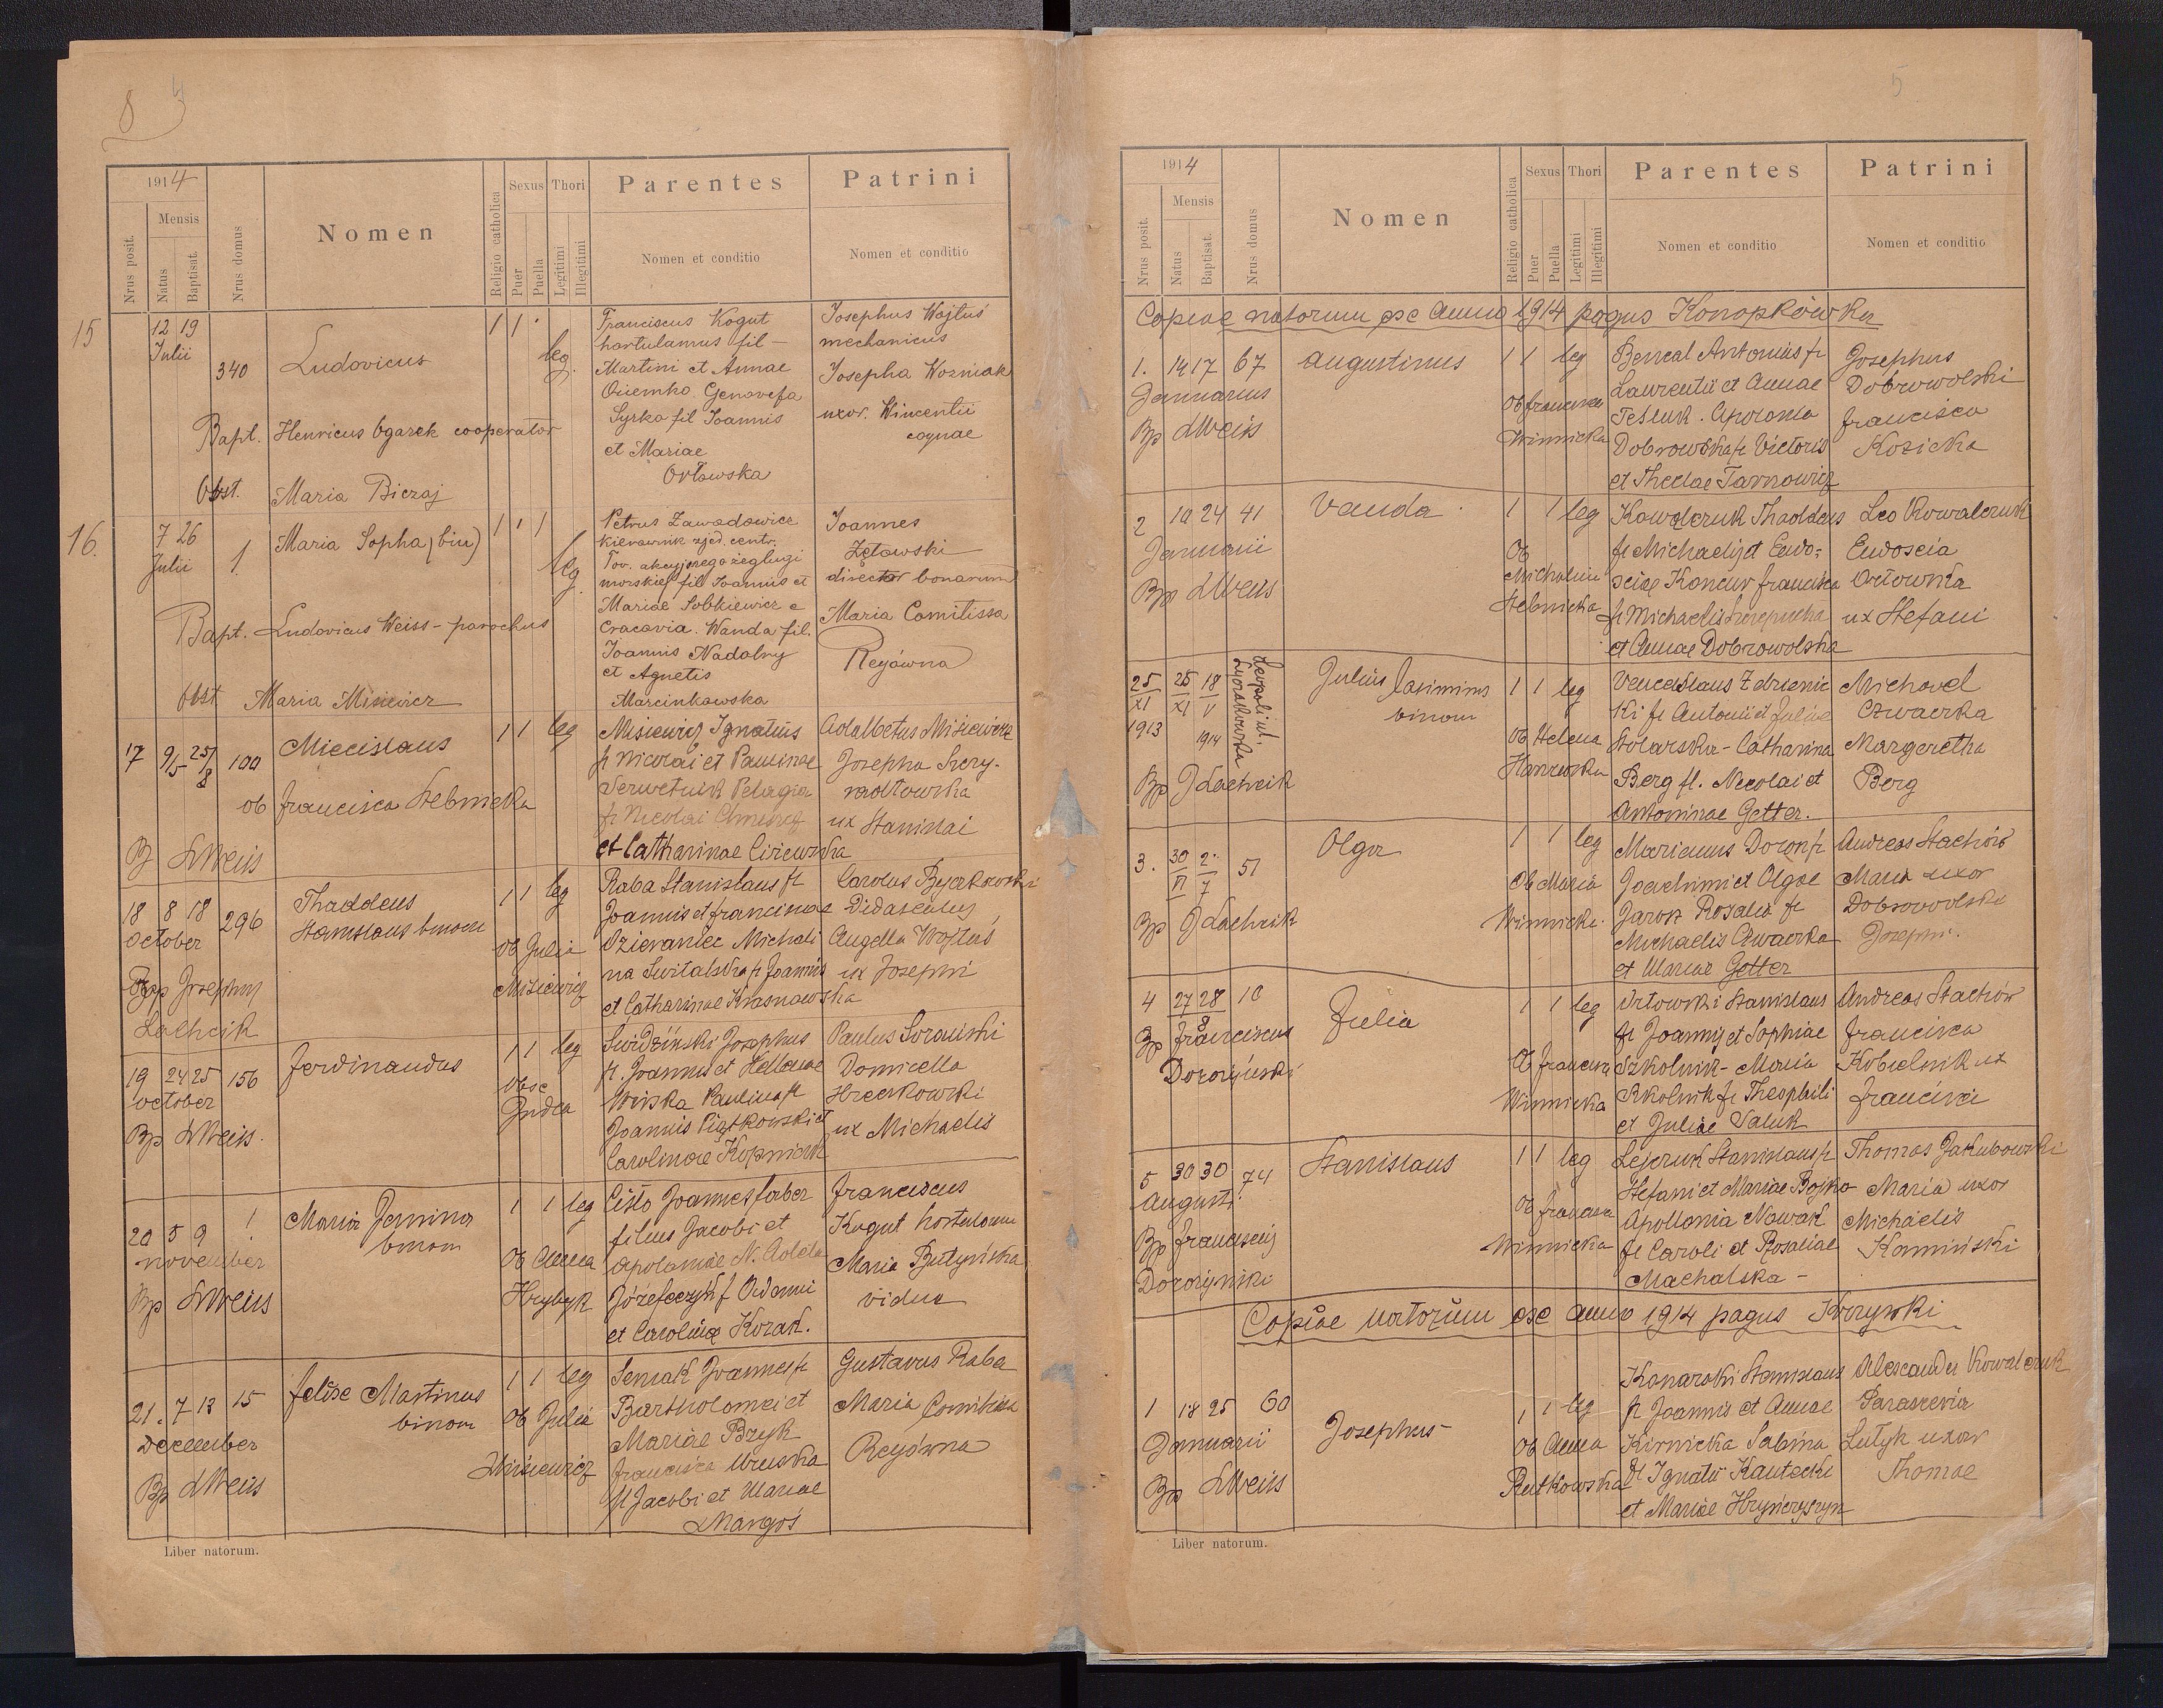 8 4
1914
Sexus Thori Parentes Patrini
Mensis
Nrus posit. Natus Baptisat. Nrus domus Nomen Religio catholica Puer Puella Legitimi Illegitimi Nomen et conditio Nomen et conditio
15 12 19 Julii 340 Ludovicus 1 1 leg.
Franciscus Kogut
hortulamus fil -
Martini et Annae
Genovefa
Syrko fil Joannis
et Mariae
Orłowska
Josephus Wojtuś
mechanicus
Josepha Wozniak
uxor. Wincentii
Bapt. Henricus Ogarek cooperator
Obst. Maria Bieraj
16. 7 26 Julii 1 Maria Sopha (bin) 1 1 leg.
Petrus Zawadowicz
kierownik zjed. centr.
Tov. akcyjnego żeglugi
morskiej fil Joannis et
Mariae Sobkiewicz e
Cracovia. Wanda fil.
Joannis Nadolny
et Agnetis
Marcinkowska
Joannes
Zętowski
director bonarum
Maria Comitissa
Reyówna
Bapt. Ludovicus Weiss - parochus
Obst Maria Misiewicz
17 9/5 25/8 100 Miecislaus 1 1 leg
Misiewicz Ignatius
fr Nicolai et Paulinae
Serwetnik Pelagia
fr Nicolai
et Catharinae
Adalbetus Misiewicz
Josepha Szery-
ux Stanislai
ob Francisca Stebnicka
B LWeiss
18 8 18 296 October Thaddeus
Stanislaus binom 1 1 leg
Ob Julia
Misiewicz
Raba Stanislaus fr
Joannis et Francincae
Dzieraniec Michali
na Switalska fr Joannis
et Catharinae Krasnowska
Carolus Byczkowski
Didascalus
Angella Wojtuś
ux Josephi
Bp Josephus
Lachcik
19 24 25 156 October Ferdinandus 1 1 leg
Swidziński Josephus
fr. Joannis et Hellenae
Paulina fr
Joannis Piątkowski et
Carolinae Kopniak
Paulus
Domicella
Hreczkowski
ux Michaelis
Bp LWeiss.
20 5 9 1 November Maria Jannina
binom 1 1 leg
Ob Anna
Hrybyk
Cisło Joannes faber
filius Jacobi et
Apolaniae N. Adela
Józefczyk f Adami
et Carolinae Korak.
Franciscus
Kogut hortulanus
Maria Butyńska
vidua
Bp LWeiss
21. 7 13 15 December Felixe Martinus
binom 1 1 leg
Ob Julia
Misiewicz
Semak Joannes fr
Bartholomei et
Mariae Bzyk
Francisca
fl Jacobi et Mariae
Margoś
Gustavus Raba
Maria Comitissa
Reyówna
Bp LWeiss
Liber natorum.
5
1914
Sexus Thori Parentes Patrini
Mensis
Nrus posit. Natus Baptisat. Nrus domus Nomen Religio catholica Puer Puella Legitimi Illegitimi Nomen et conditio Nomen et conditio
Copiae natorum exe Anno 1914 pagus Konopkówka
1. 14 17 67 Januarius Augustinus 1 1 leg
Ob Francisca
Winnicka
Bencal Antonius fr
Laurentii et Annae
Tesluk. Apolonia
Dobrowolska fr Victoris
et Theclae Tarnowicz
Josephus
Dobrowolski
Francisca
Kosicka
Bp LWeiss
2 10 24 41 Januarii Vanda 1 1 leg
Ob
Michalina
Stebnicka
Kowalczuk Thaddeus
fr Michaelis et Eudo=
sciae Koncur Francisca
fr Michaelis
et Annae Dobrowolska
Leo Kowalczuk
Eudoscia
Orłowska
ux Stefani
Bp LWeiss
25/XI 1913 25/XI 18/V 1914 Leopoli ul. Lyczakowska Julius Casimirus
binom 1 1 leg
Ob Helena
Venceslaus Zdzienic
ki fr Antonii et Juliae
Stolarska - Catharina
Berg fl. Nicolai et
Antoninae Getter.
Michael
Czwaczka
Margeretha
Berg
Bp J Lachcik
3. 30/VI 2/7 51 Olga 1 1 leg
Ob Maria
Winnicka
Marianus Doron fr
Joachimi et Olgae
Jarosz Rosalia fr
Michaelis Czwaczka
et Mariae Getter
Andreas Stachów
Maria uxor
Dobrowolski
Josephi.
Bp J Lachcik
4 27 28 8 10 Julia 1 1 leg
Ob Francisca
Winnicka
Orłowski Stanislaus
fr Joannis et Sophiae
Szkolnik - Maria
Szkolnik fr Theophili
et Juliae Saluk
Andreas Stachów
Francisca
Kobielnik ux
Francisci
Bp Franciscus
Dorożyński
5 30 30 74 August. Stanislaus 1 1 leg
Ob Francisca
Winnicka
Lejczuk Stanislaus fr
Stefani et Mariae Bojko
Apollonia Nowak
fl Caroli et Rosaliae
Machalska -
Thomas Jakubowski
Maria uxor
Michaelis
Kamiński
Bp Franciscus
Dorożyński
Copiae natorum exe anno 1914 pagus Krzywki
1 18 25 60 Januarii Josephus 1 1 leg
Ob Anna
Rutkowska
Konarski Stanislaus
fr Joannis et Annae
Kirnicka Sabina
fl Ignatii Kantecki
et Mariae Hryńczyszyn
Alexander Kowalczuk
Parascevia
Lutyk uxor
Thomae
Bp LWeiss
Liber natorum.